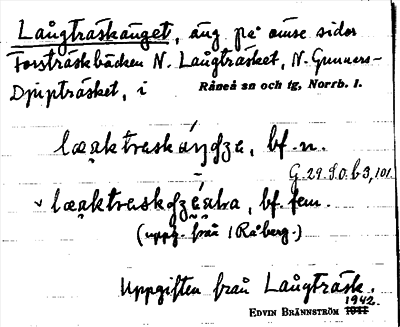 Långträskänget, äng på ömse sidor
Forsträskbäcken N. Långträsket, N. Gunners-
Djupträsket, i Råneå sn och tg, Norrb. l.
bf. n.
G. 29. S. 0. b 3, 101
bf. fem.
(uppg. från /Råberg.)
Uppgiften från Långträsk.
EDVIN BRÄNNSTRÖM 1942.